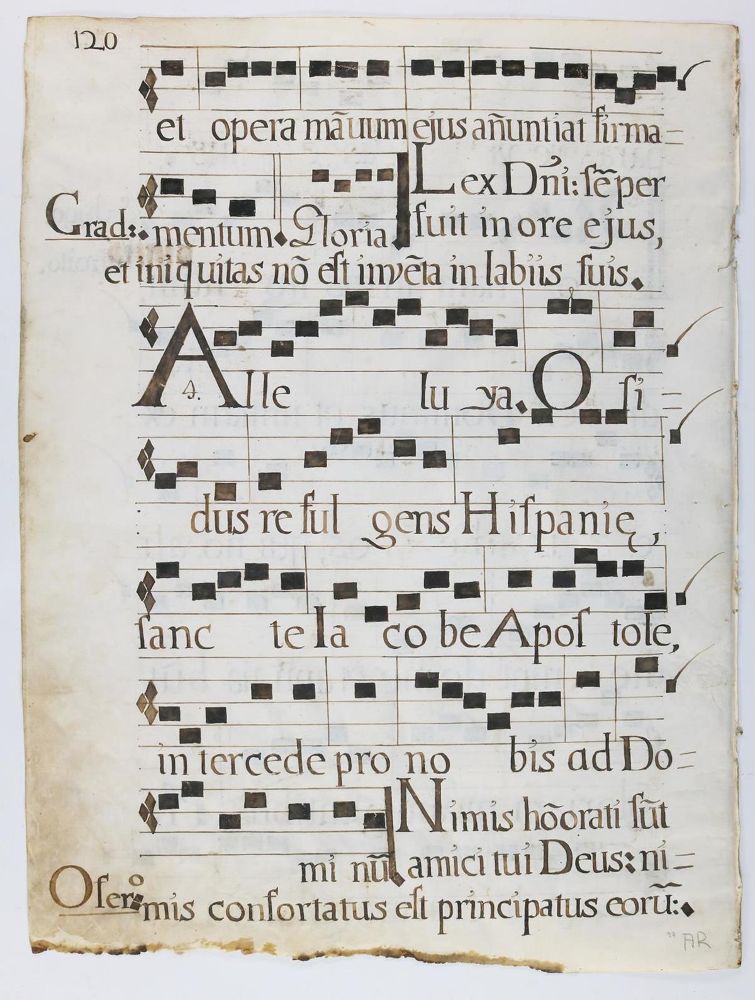 120
et opera mãuum ejus añuntiat firma=
Lex Dñi: sẽper
Grad: mentum. Gloria. fuit in ore ejus,
et iniquitas nõ est invẽta in labiis suis.
Alle lu ya. O si=
4.
dus re ful gens Hispanię,
sanc te Ia co be Apos tole,
in tercede pro no bis ad Do=
Nimis hõorati sũt
mi nũ. amici tui Deus: ni=
Ofero: mis confortatus est principatus eorũ:
AR